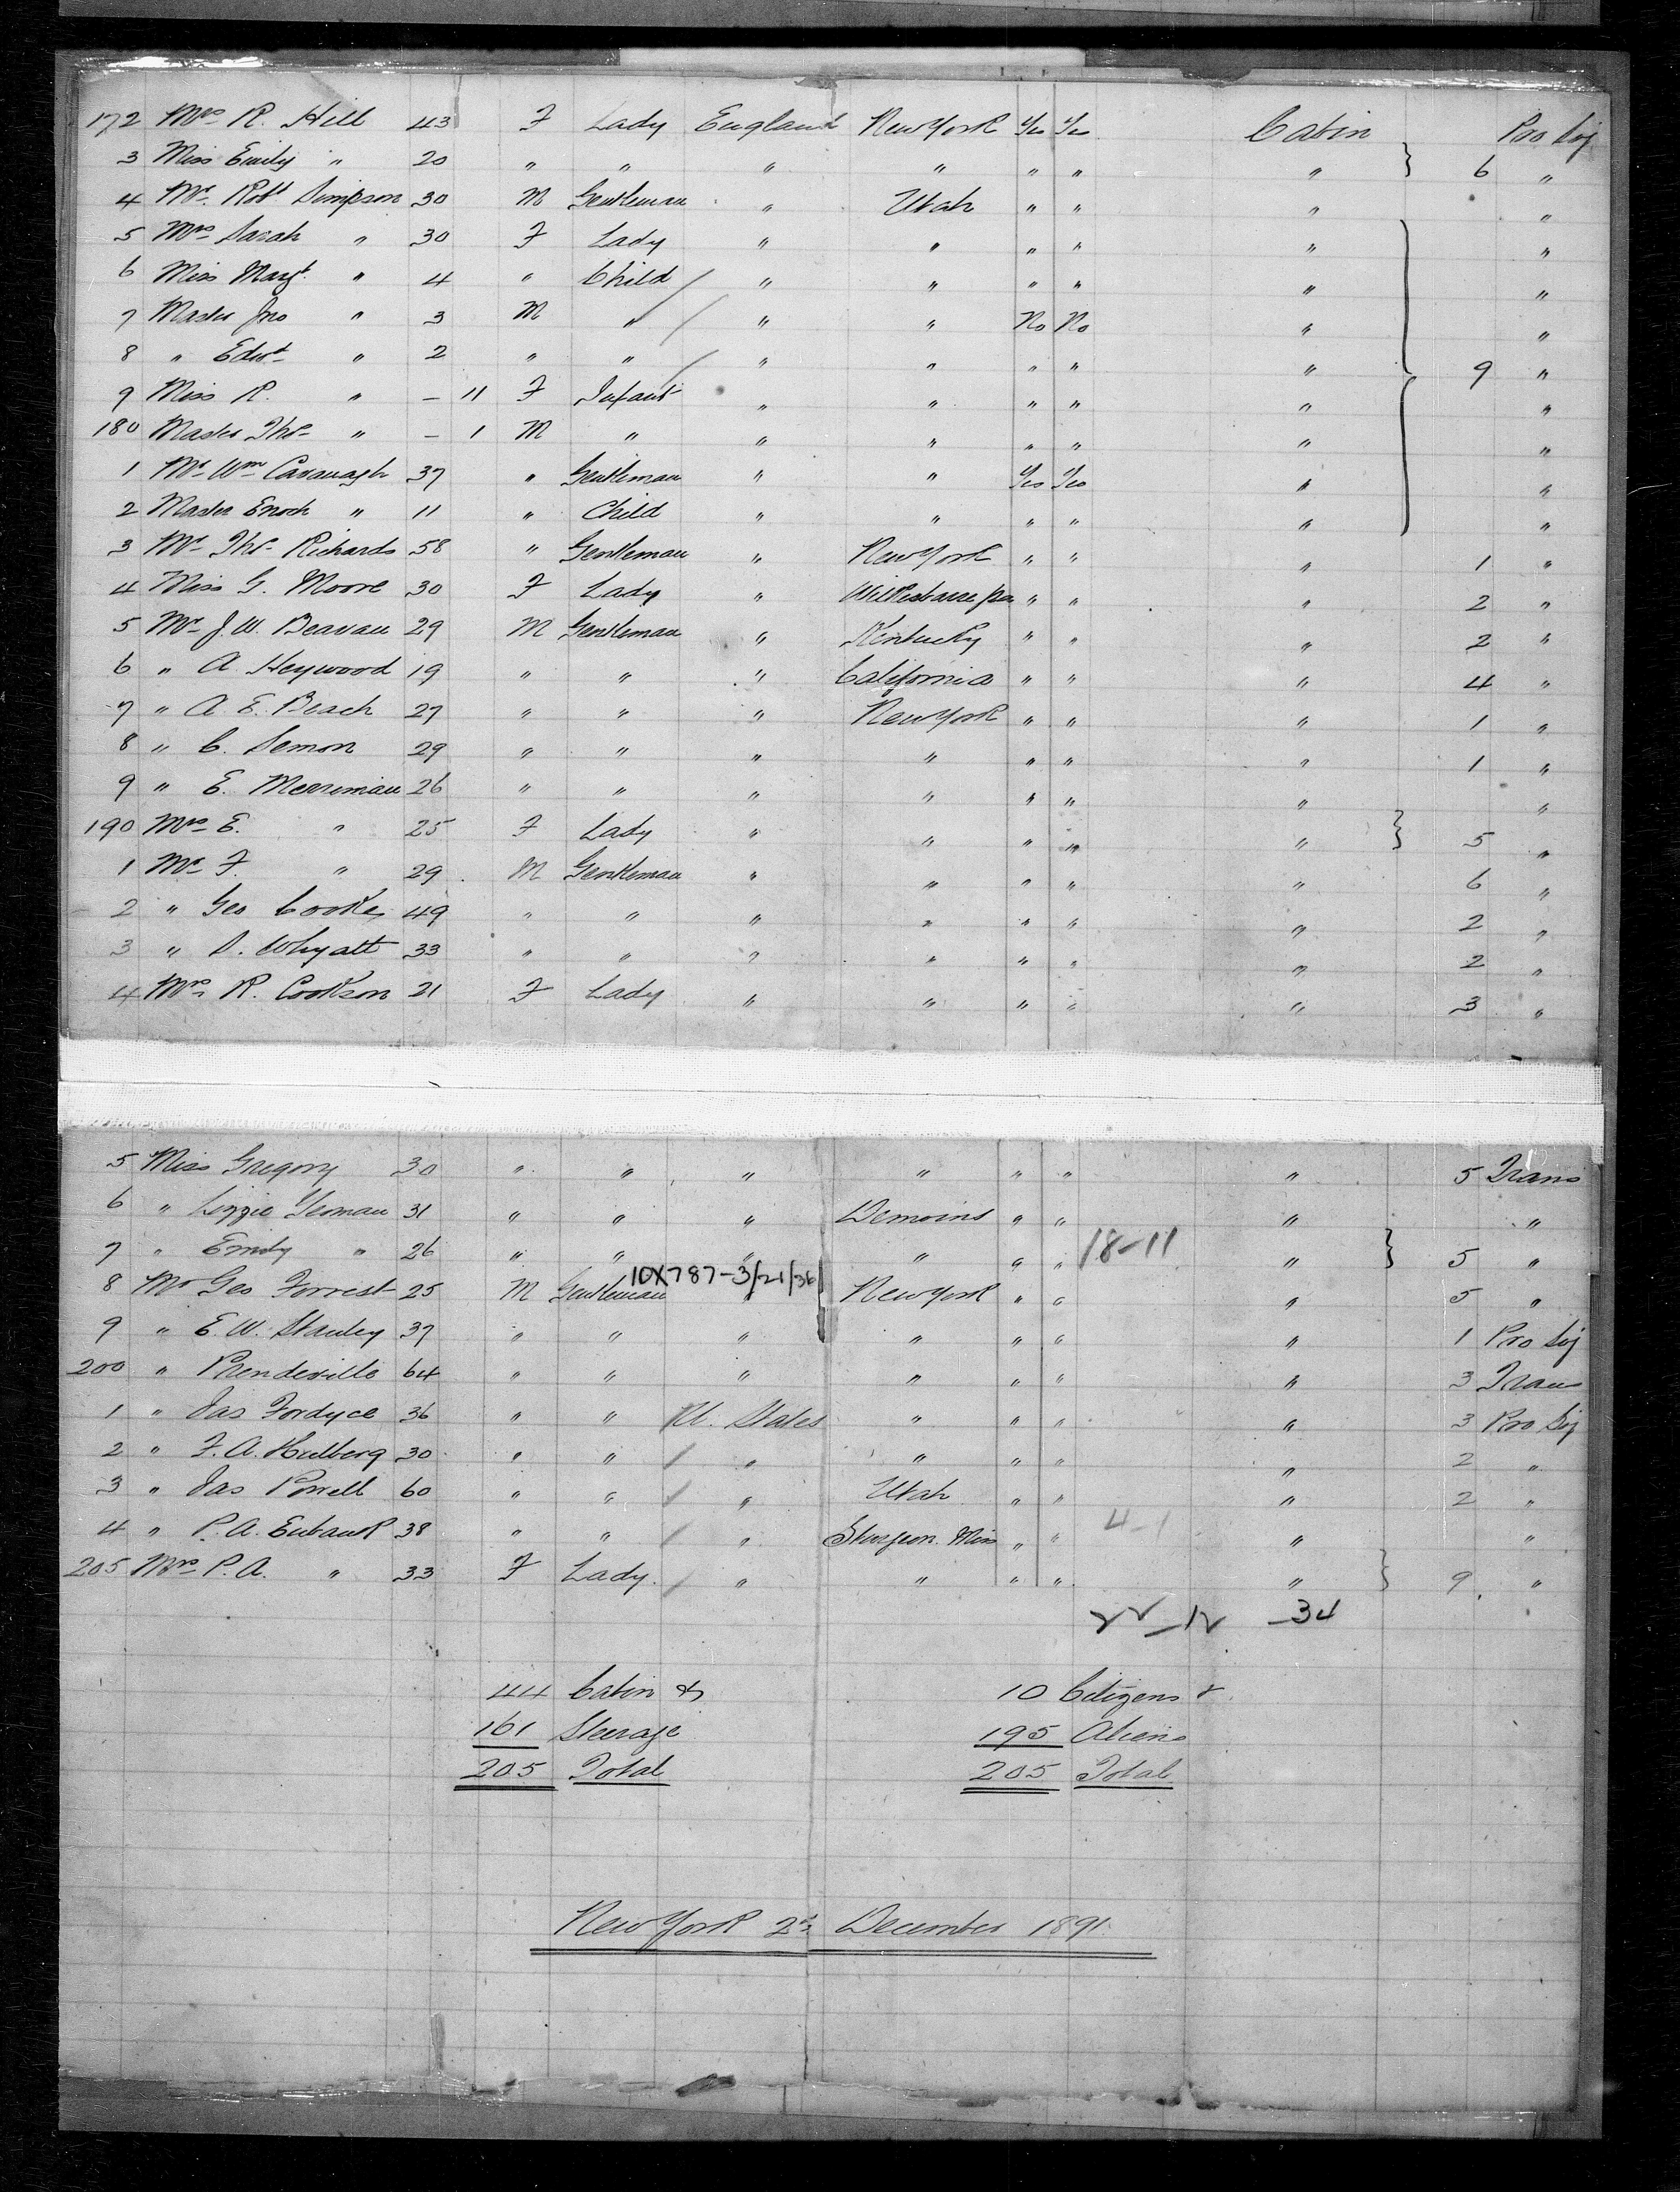 172 Mrs R. Hill 43 F Lady England New York Yes Yes Cabin Pro Soj
3 Miss Emily " 20 " " " " " " " 6 "
4 Mr. Robt Simpson 30 M Gentleman " Utah " " " "
5 Mrs Sarah " 30 F Lady " " " " " "
6 Miss Margt. " 4 " Child " " " " " "
7 Master Jno " 3 M " " " No No " "
8 " Edwd " 2 " " " " " " " 9 "
9 Miss R. " - 11 F Infant " " " " " "
180 Master Thos " - 1 M " " " " " " "
1 Mr Wm Cavanagh 37 " Gentleman " " Yes Yes " "
2 Master Enoch " 11 " Child " " " " " "
3 Mr Thos Richards 58 " Gentleman " New York " " " 1 "
4 Miss G. Moore 30 F Lady " Wilkesbarre Pa " " " 2 "
5 Mr J. W. Beavan 29 M Gentleman " Kentucky " " " 2 "
6 " A. Heywood 19 " " " California " " " 4 "
7 " A. E. Beach 27 " " " New York " " " 1 "
8 " C. Semon 29 " " " " " " " 1 "
9 " E. Merriman 26 " " " " " " " "
190 Mrs E. " 25 F Lady " " " " " 5 "
1 Mr F. " 29 M Gentleman " " " " " 6 "
2 " Geo Cooke 49 " " " " " " " 2 "
3 " S. Whyatt 33 " " " " " " " 2 "
4 Mrs R. Cookson 21 F Lady " " " " " 3 "
5 Miss Gregory 30 " " " " " " " 5 Trans
6 " Lizzie Yeoman 31 " " " Demoins " " " "
7 " Emily " 26 " " " " " " 18-11 " 5 "
10X787-3/21/36
8 Mr Geo Forrest 25 M Gentleman " New York " " " 5 "
9 " E. W. Stanley 37 " " " " " " " 1 Pro Soj
200 " Prendeville 64 " " " " " " " 3 Trans
1 " Jas Fordyce 36 " " U. States " " " " 3 Pro Soj
2 " F. A. Hulberg 30 " " " " " " " 2 "
3 " Jas Powell 60 " " " Utah " " " 2 "
4 " P. A. Eubank 38 " " " Sturgeon. Miss " " 4-1 " "
205 Mrs P. A. " 33 F Lady. " " " " " 9 "
22-12 -34
44 Cabin & 10 Citizens &
161 Steerage 195 Aliens
205 Total 205 Total
New York 2nd December 1891.